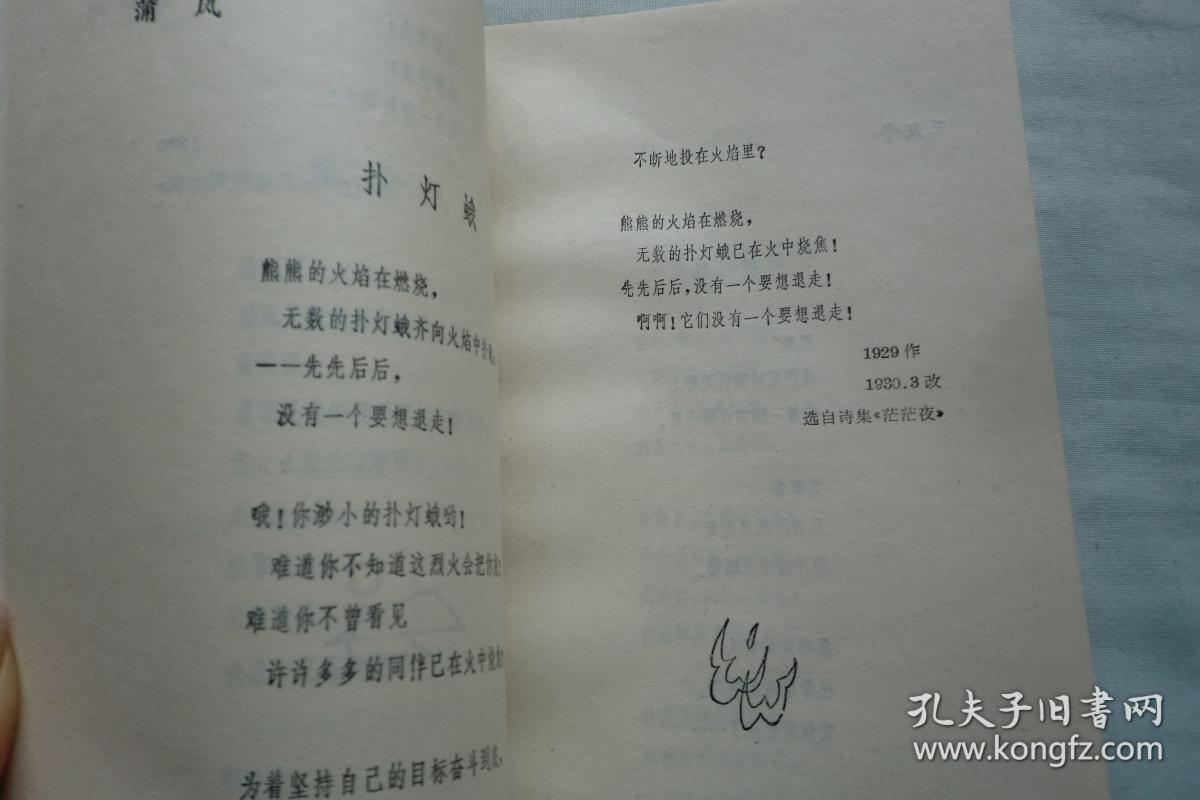 蒲风
扑灯蛾
熊熊的火焰在燃烧，
无数的扑灯蛾齐向火焰中扑
——先先后后，
没有一个要想退走！
哦！你渺小的扑灯蛾哟！
难道你不知道这烈火会把你
难道你不曾看见
许许多多的同伴已在火中烧
为着坚持自己的目标奋斗到底，
不断地投在火焰里？
熊熊的火焰在燃烧，
无数的扑灯蛾已在火中烧焦！
先先后后，没有一个要想退走！
啊啊！它们没有一个要想退走！
1929作
1930.3改
选自诗集《茫茫夜》
孔夫子旧书网
www.kongfz.com